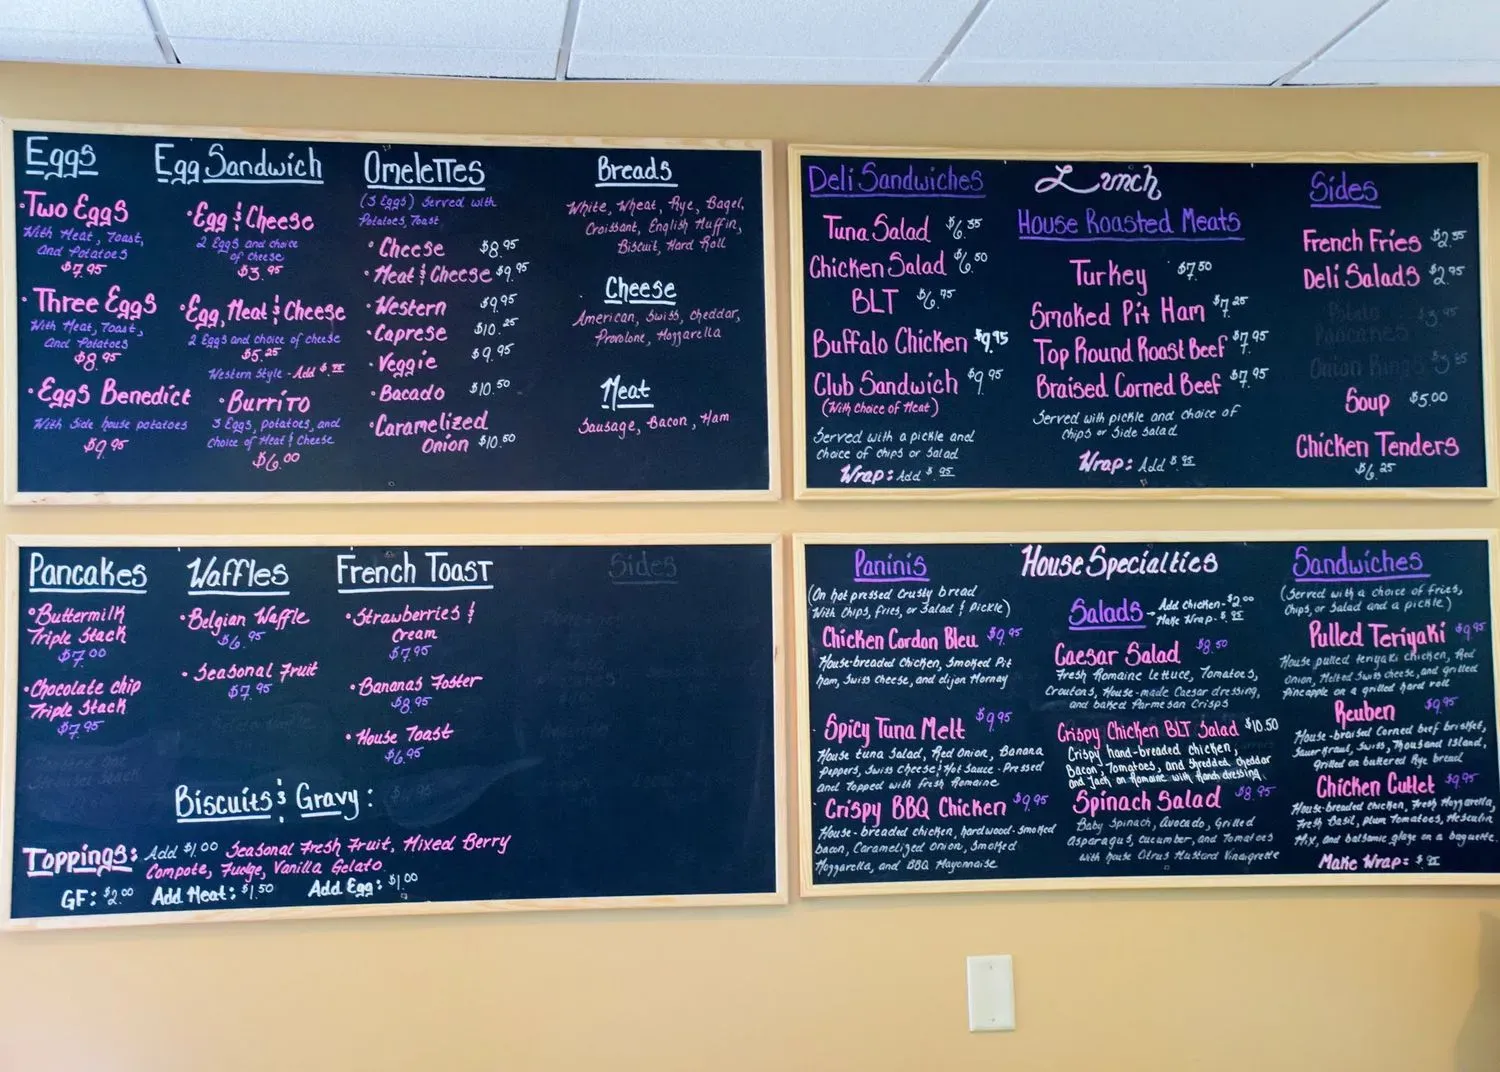 Eggs
• Two Eggs
With Meat, Toast,
and Potatoes
$7.95
• Three Eggs
With Meat, Toast,
and Potatoes
$8.95
• Eggs Benedict
With Side house potatoes
$9.95
Egg Sandwich
• Egg & Cheese
2 Eggs and choice
of cheese
$3.95
• Egg, Meat & Cheese
2 Eggs and choice of cheese
$5.25
Western Style - Add
• Burrito
3 Eggs, potatoes, and
choice of Meat & Cheese
$6.00
Omelettes
(3 Eggs) Served with
Potatoes, Toast
• Cheese $8.95
• Meat & Cheese $9.95
• Western $9.95
• Caprese $10.25
• Veggie $9.95
• Bacado $10.50
• Caramelized
Onion $10.50
Breads
White, Wheat, Rye, Bagel,
Croissant, English Muffin,
Biscuit, Hard Roll
Cheese
American, Swiss, cheddar,
Provolone, Mozzarella
Meat
Sausage, Bacon, Ham
Lunch
Deli Sandwiches
Tuna Salad
Chicken Salad $6.50
BLT $6.75
Buffalo Chicken $9.95
Club Sandwich $9.95
(With Choice of Meat)
Served with a pickle and
choice of chips or salad
Wrap: Add $.95
House Roasted Meats
Turkey $7.50
Smoked Pit Ham $7.25
Top Round Roast Beef $7.95
Braised Corned Beef $7.95
Served with pickle and choice of
chips or Side Salad
Wrap: Add $.95
Sides
French Fries
Deli Salads $2.95
Potato
Pancakes $3.95
Onion Rings
Soup $5.00
Chicken Tenders
$6.25
Pancakes
• Buttermilk
Triple Stack
$7.00
• Chocolate chip
Triple Stack
$7.95
Waffles
• Belgian Waffle
$6.95
• Seasonal Fruit
$7.95
French Toast
• Strawberries &
Cream
$7.95
• Bananas Foster
$8.95
• House Toast
$6.95
Sides
Biscuits & Gravy:
Toppings: Add $1.00 Seasonal Fresh Fruit, Mixed Berry
Compote, Fudge, Vanilla Gelato
GF: $2.00 Add Meat: $1.50 Add Egg: $1.00
House Specialties
Paninis
(On hot pressed Crusty bread
With Chips, fries, or Salad & Pickle)
Chicken Cordon Bleu $9.95
House-breaded Chicken, Smoked Pit
ham, Swiss Cheese, and dijon Mornay
Spicy Tuna Melt $9.95
House tuna Salad, Red Onion, Banana
Peppers, Swiss Cheese & Hot Sauce - Pressed
and topped with fresh Romaine
Crispy BBQ Chicken $9.95
House-breaded chicken, hardwood-smoked
bacon, Caramelized Onion, Smoked
Mozzarella, and BBQ Mayonnaise
Salads → Add Chicken - $2.00
Make Wrap - $.95
Caesar Salad $8.50
Fresh Romaine Lettuce, Tomatoes,
Croutons, House-made Caesar dressing,
and baked Parmesan Crisps
Crispy Chicken BLT Salad $10.50
Crispy hand-breaded chicken,
Bacon, Tomatoes, and Shredded cheddar
and Jack on Romaine with Ranch dressing
Spinach Salad $8.95
Baby Spinach, Avocado, Grilled
Asparagus, cucumber, and Tomatoes
with house Citrus Mustard Vinaigrette
Sandwiches
(Served with a choice of fries,
Chips, or Salad and a pickle)
Pulled Teriyaki $9.95
House pulled teriyaki chicken, Red
Onion, Melted Swiss cheese, and grilled
Pineapple on a grilled hard roll
Reuben $9.95
House-braised Corned beef brisket,
Sauerkraut, Swiss, Thousand Island,
Grilled on buttered Rye bread
Chicken Cutlet $9.95
House-breaded chicken, Fresh Mozzarella,
Fresh Basil, plum Tomatoes, Mesculin
Mix, and balsamic glaze on a baguette.
Make Wrap: $.95